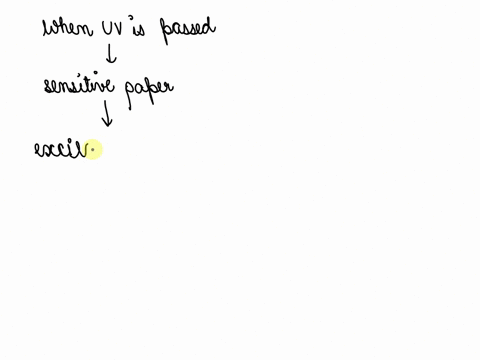 when UV is passed
↓
sensitive paper
↓
excit